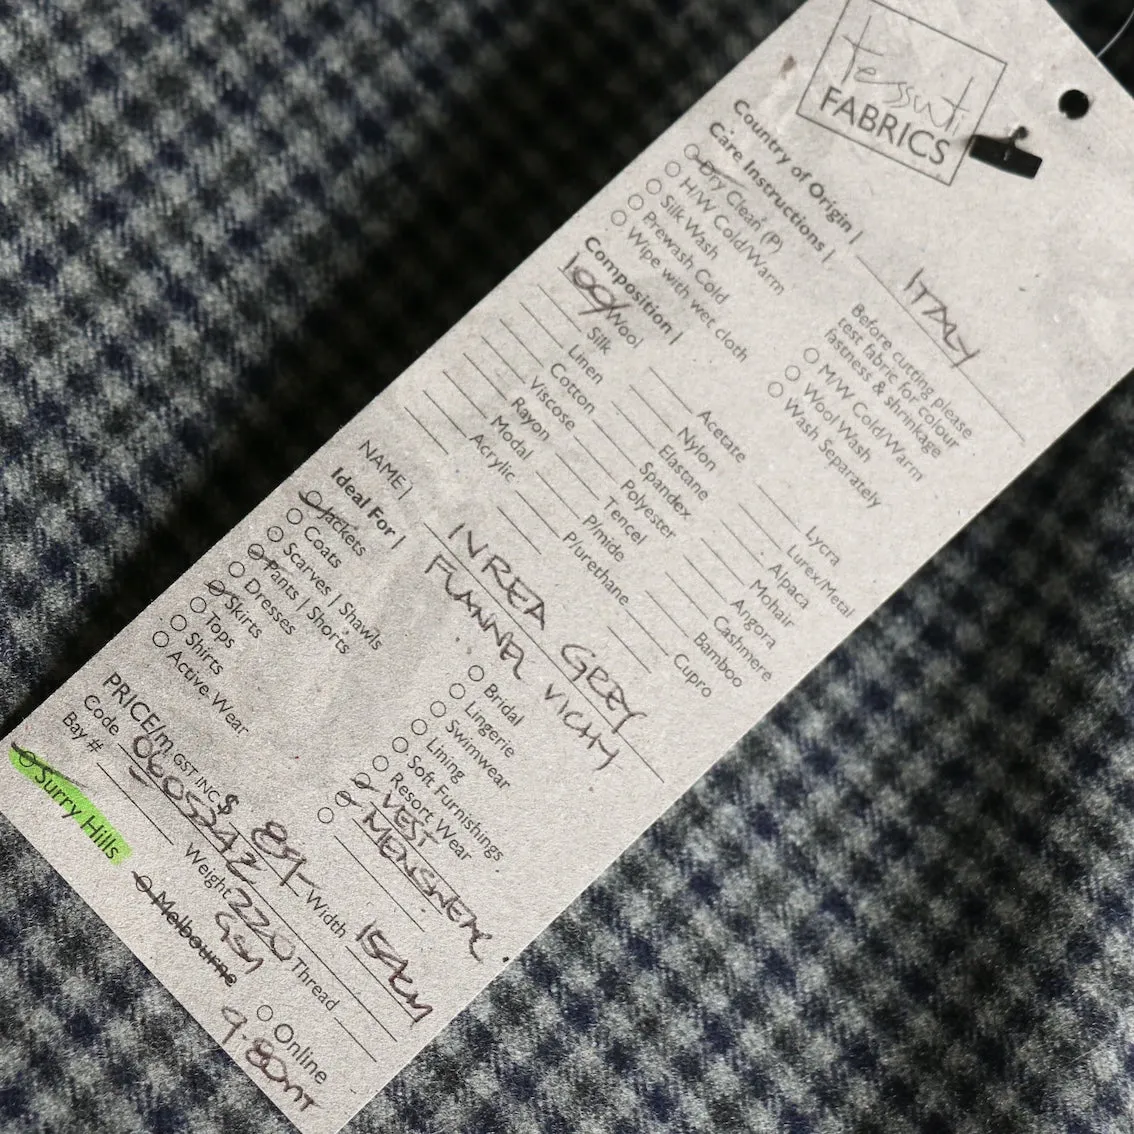 tessuti
FABRICS
Country of Origin | ITALY
Care Instructions |
Dry Clean (P)
H/W Cold/Warm
Silk Wash
Prewash Cold
Wipe with wet cloth
Before cutting please
test fabric for colour
fastness & shrinkage
M/W Cold/Warm
Wool Wash
Wash Separately
Composition |
100% Wool
Silk
Linen
Cotton
Viscose
Rayon
Modal
Acrylic
Acetate
Nylon
Elastane
Spandex
Polyester
Tencel
P/mide
P/urethane
Lycra
Lurex/Metal
Alpaca
Mohair
Angora
Cashmere
Bamboo
Cupro
NAME | IVREA GREY
FLANNEL VICHY
Ideal For |
Jackets
Coats
Scarves | Shawls
Pants | Shorts
Dresses
Skirts
Tops
Shirts
Active Wear
Bridal
Lingerie
Swimwear
Lining
Soft Furnishings
Resort Wear
VEST
MENSWEAR
PRICE/m GST INC. $ 89- Width 154cm
Code 0605242 Thread
Bay # Weight 220 GSM
Surry Hills
Melbourne
Online
9.80MT